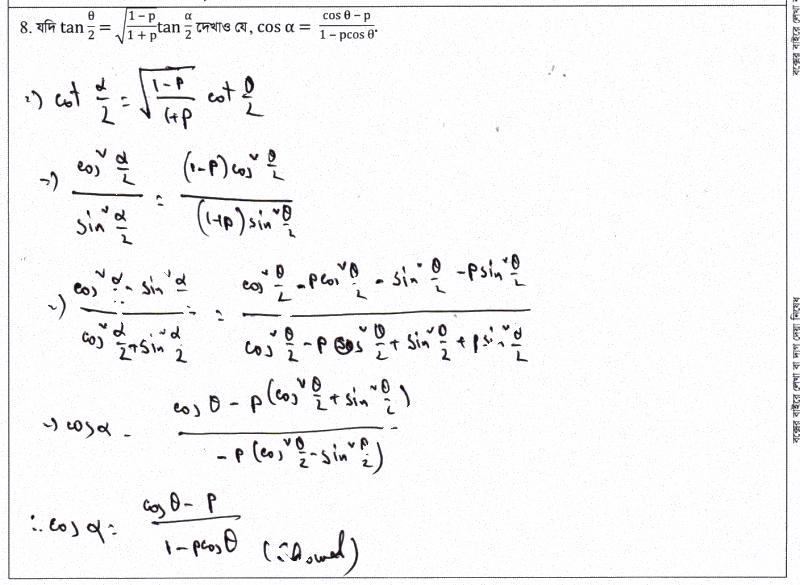 8. যদি tan θ/2 = √((1 − p)/(1 + p)) tan α/2 দেখাও যে, cos α = (cos θ − p)/(1 − pcos θ).
⇒) cot α/2 = √((1-P)/(1+P)) cot θ/2
⇒) (cos² α/2)/(sin² α/2) = ((1-P) cos² θ/2)/((1+P) sin² θ/2)
⇒) (cos² α/2 - sin² α/2)/(cos² α/2 + sin² α/2) = (cos² θ/2 - P cos² θ/2 - sin² θ/2 - P sin² θ/2)/(cos² θ/2 - P cos² θ/2 + sin² θ/2 + P sin² α/2)
⇒) cos α = (cos θ - P (cos² θ/2 + sin² θ/2))/(- P (cos² θ/2 - sin² θ/2))
∴ cos α = (cos θ - P)/(1 - P cos θ) (Showed)
বক্সের বাইরে লেখা বা দাগ দেয়া নিষেধ